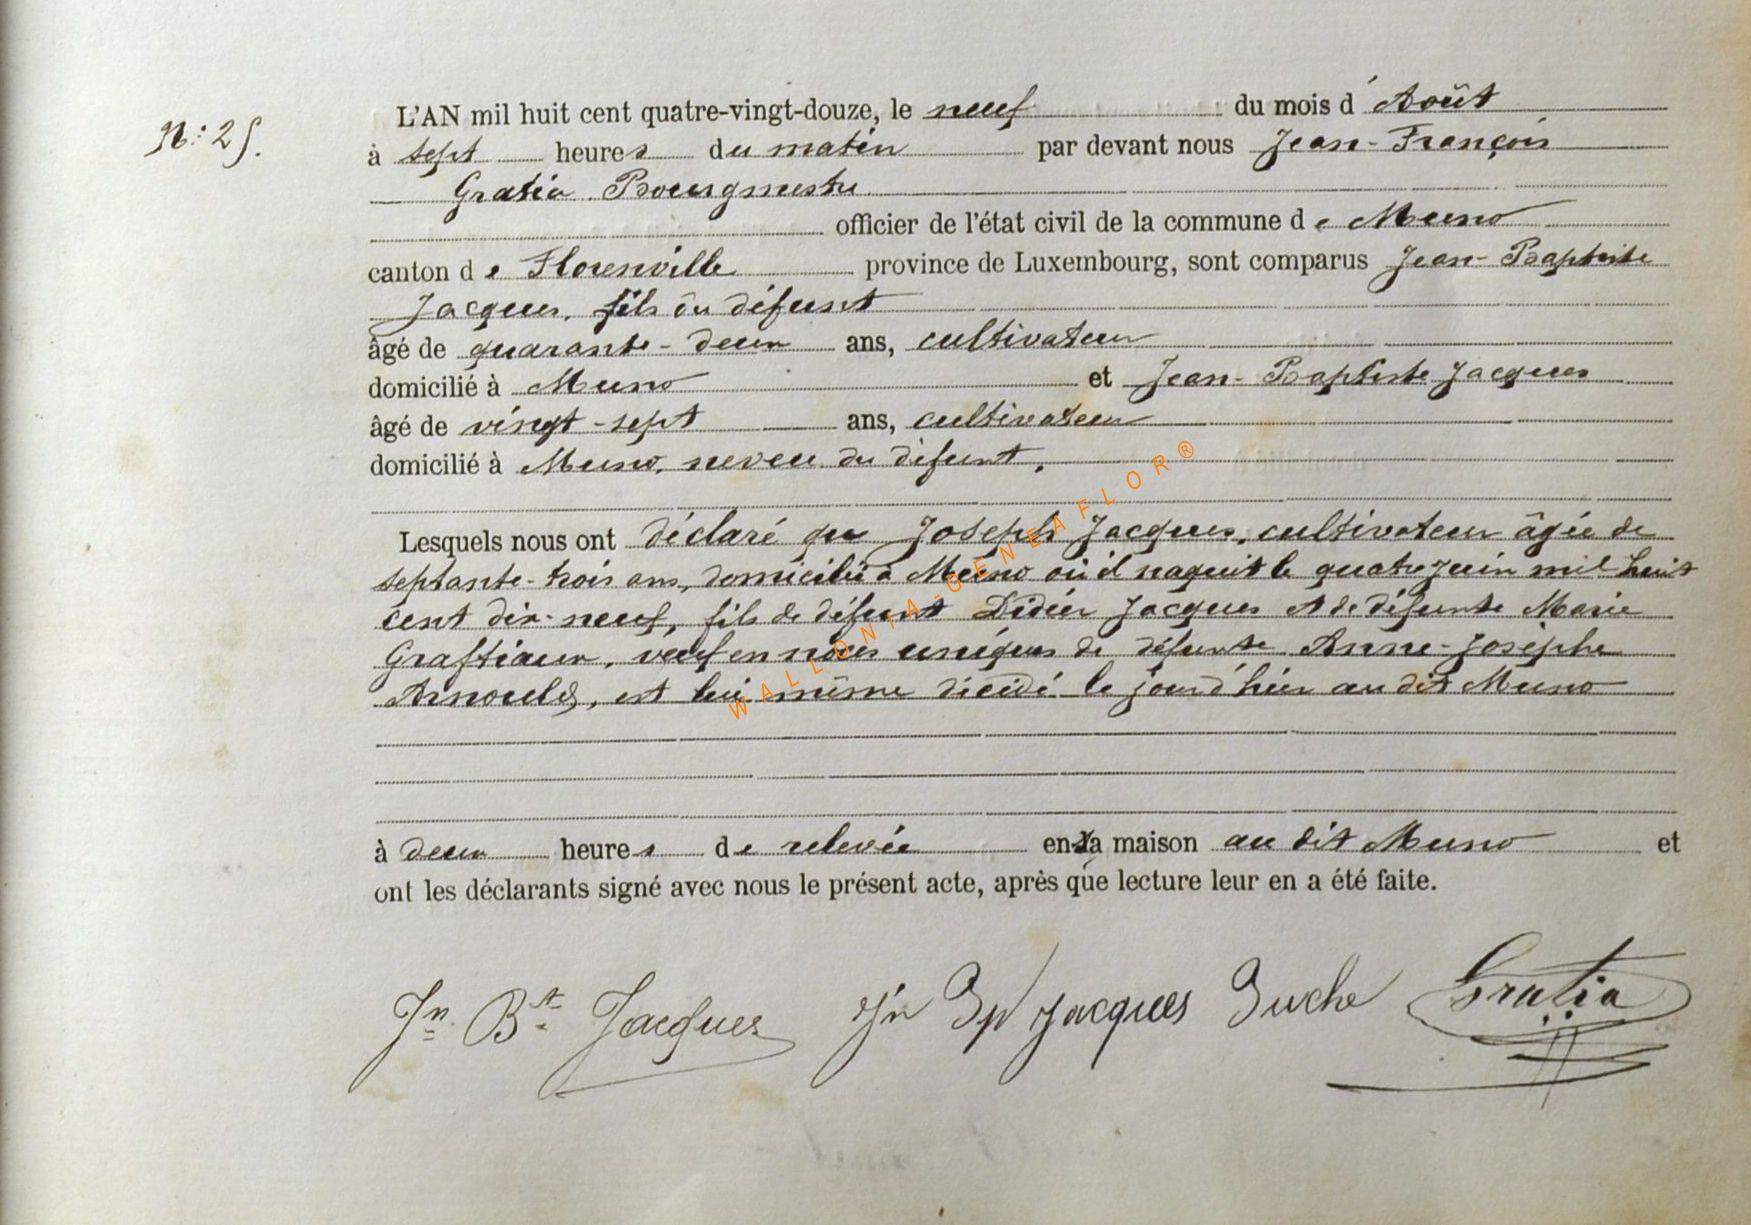 N.° 25.
L'AN mil huit cent quatre-vingt-douze, le neuf du mois d'Août
à sept heures du matin par devant nous Jean-François
Gratia Bourgmestre
officier de l'état civil de la commune de Muno
canton de Florenville province de Luxembourg, sont comparus Jean-Baptiste
Jacques, fils du défunt
âgé de quarante-deux ans, cultivateur
domicilié à Muno et Jean-Baptiste Jacques
âgé de vingt-sept ans, cultivateur
domicilié à Muno, neveu du défunt.
Lesquels nous ont déclaré que Joseph Jacques, cultivateur âgée de
septante-trois ans, domicilié à Muno où il naquit le quatre juin mil huit
cent dix-neuf, fils de défunt Didier Jacques et de défunte Marie
Graftiaux, veuf en noces uniques de défunte Anne-Josèphe
Arnould, est lui même décédé le jour d'hier au dit Muno
à deux heures de relevée en sa maison au dit Muno et
ont les déclarants signé avec nous le présent acte, après que lecture leur en a été faite.
Jn Bte Jacques Jn Bp Jacques Gratia
WALLONIA-GENEAFLOR®